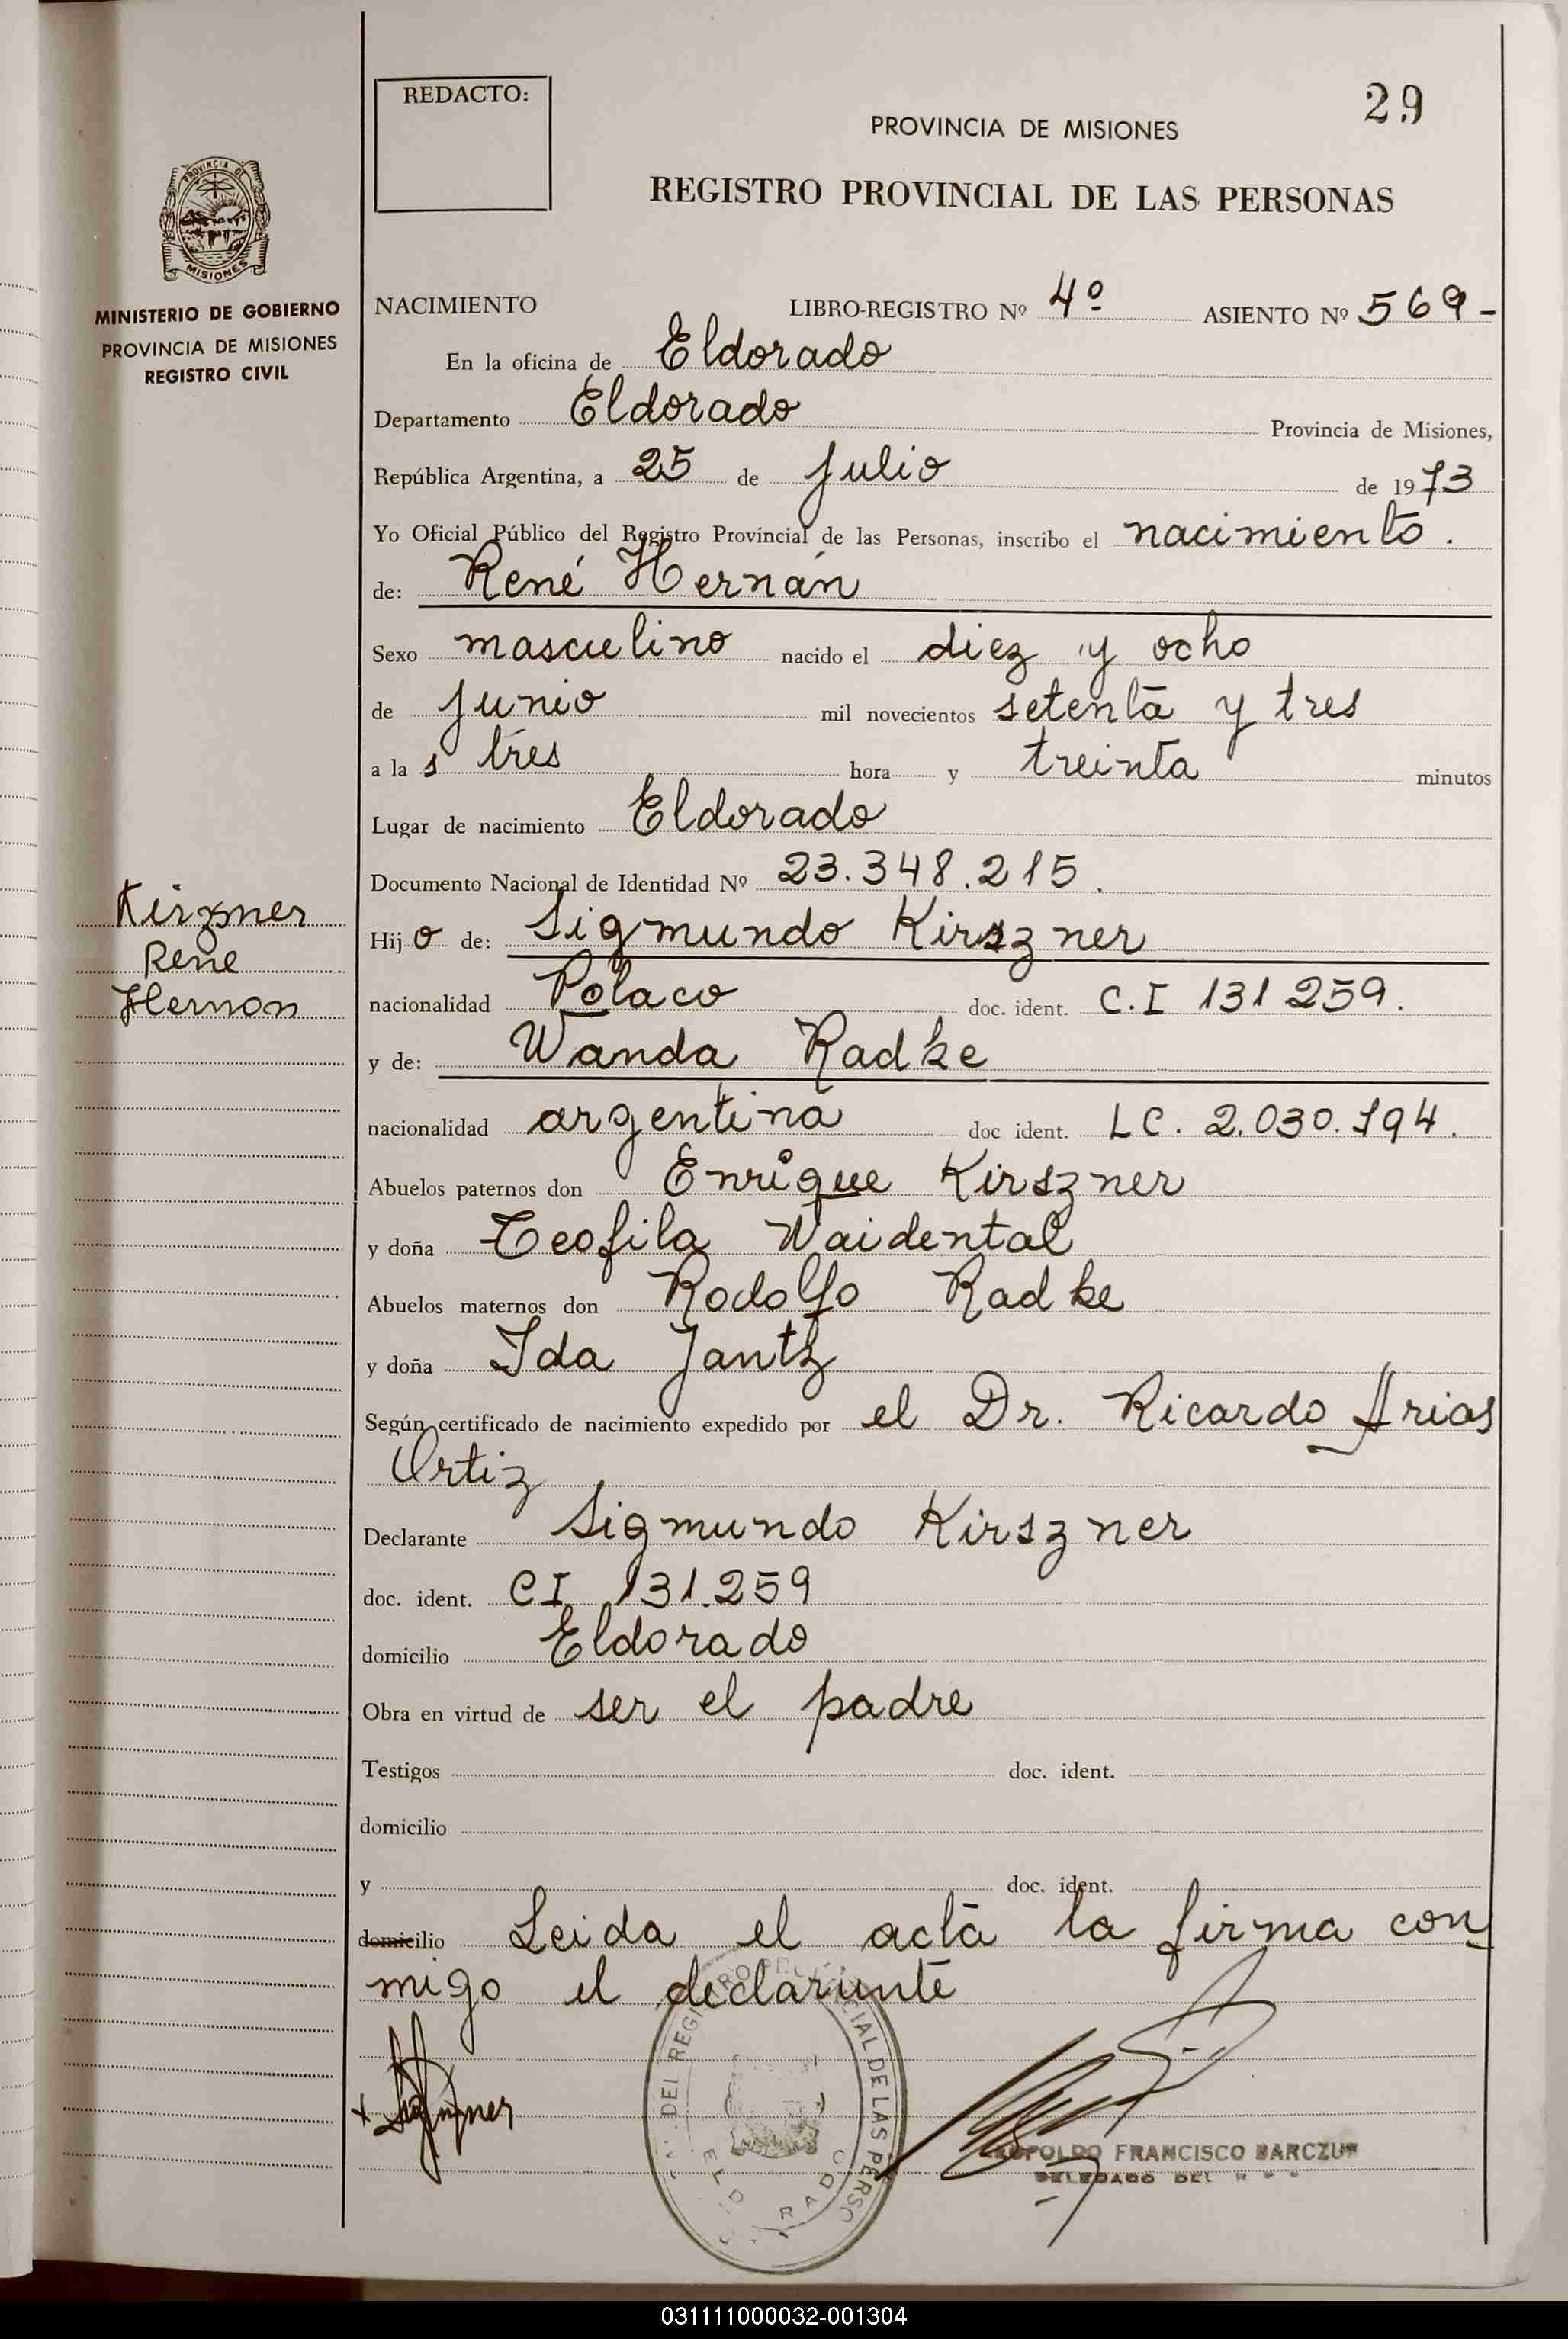 REDACTO:
29
PROVINCIA DE MISIONES
REGISTRO PROVINCIAL DE LAS PERSONAS
PROVINCIA DE
MISIONES
MINISTERIO DE GOBIERNO
PROVINCIA DE MISIONES
REGISTRO CIVIL
NACIMIENTO LIBRO-REGISTRO Nº 4º ASIENTO Nº 569-
En la oficina de Eldorado
Departamento Eldorado Provincia de Misiones,
República Argentina, a 25 de Julio de 1973
Yo Oficial Público del Registro Provincial de las Personas, inscribo el nacimiento.
de: René Hernán
Sexo masculino nacido el diez y ocho
de Junio mil novecientos setenta y tres
a la s tres hora y treinta minutos
Lugar de nacimiento Eldorado
Documento Nacional de Identidad Nº 23.348.215.
Kirzner
Rene
Hernon
Hij o de: Sigmundo Kirszner
nacionalidad Polaco doc. ident. C.I 131 259.
y de: Wanda Radke
nacionalidad argentina doc ident. LC. 2.030.194.
Abuelos paternos don Enrique Kirszner
y doña Teofila Waidental
Abuelos maternos don Rodolfo Radke
y doña Ida Jantz
Según certificado de nacimiento expedido por el Dr. Ricardo Arias
Ortiz
Declarante Sigmundo Kirszner
doc. ident. CI 131.259
domicilio Eldorado
Obra en virtud de ser el padre
Testigos doc. ident.
domicilio
y doc. ident.
domicilio Leida el acta la firma con
migo el declarante
FRANCISCO BARCZUK
DELEGADO DEL
031111000032-001304